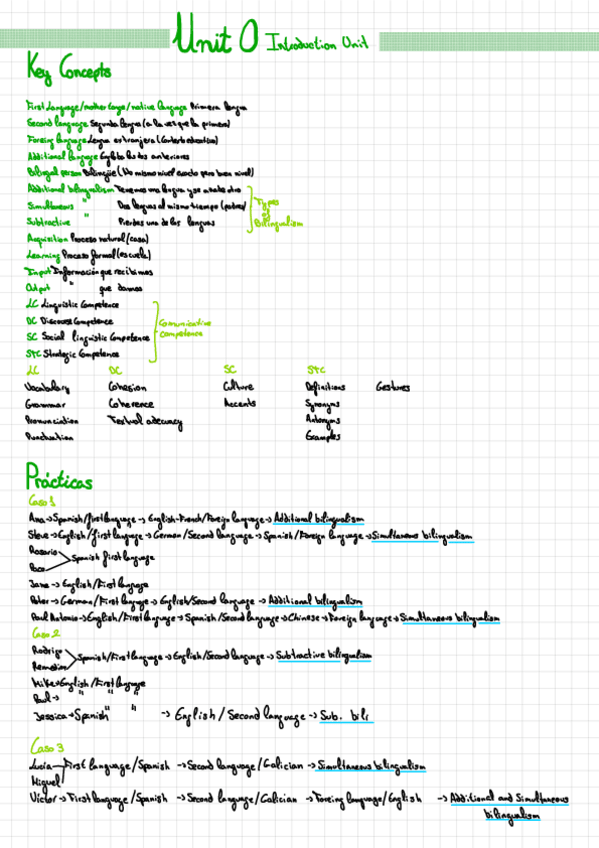 Unit 0 Introduction Unit
Key Concepts
First Language/mother tonge/native language Primera lengua
Second language Segunda lengua (a la vez que la primera)
Foreing language Lengua extranjera (Contexto educativo)
Additional language Engloba las dos anteriores
Bilingual person Bilingüe (No mismo nivel exacto pero buen nivel)
Additional bilingualism Tenemos una lengua y se añade otra
Simultaneous " Dos lenguas al mismo tiempo (padres)
Subtractive " Pierdes una de las lenguas
Types of Bilingualism
Acquisition Proceso natural (casa)
Learning Proceso formal (escuela)
Input Información que recibimos
Output " que damos
LC Linguistic Competence
DC Discourse Competence
SC Social linguistic Competence
STC Strategic Competence
Comunicative competence
LC DC SC STC
Vocabulary Cohesion Culture Definitions Gestures
Grammar Coherence Accents Synonyms
Pronunciation Textual adecuacy Antonyms
Punctuation Examples
Prácticas
Caso 1
Ana → Spanish/first language → English-French/Foreign language → Additional bilingualism
Steve → English/first language → German/Second language → Spanish/Foreign language → Simultaneous bilingualism
Rosario
Paco
Spanish first language
Jane → English/First language
Peter → German/First language → English/Second language → Additional bilingualism
Paul Antonio → English/First language → Spanish/Second language → Chinese → Foreign language → Simultaneous bilingualism
Caso 2
Rodrigo
Remedios
Spanish/First language → English/Second language → Subtractive bilingualism
Mike → English/First language
Paul → " " "
Jessica → Spanish " " → English/Second language → Sub. bili
Caso 3
Lucía
Miguel
First language/Spanish → Second language/Galician → Simultaneous bilingualism
Víctor → First language/Spanish → Second language/Galician → Foreing language/English → Additional and Simultaneous
bilingualism